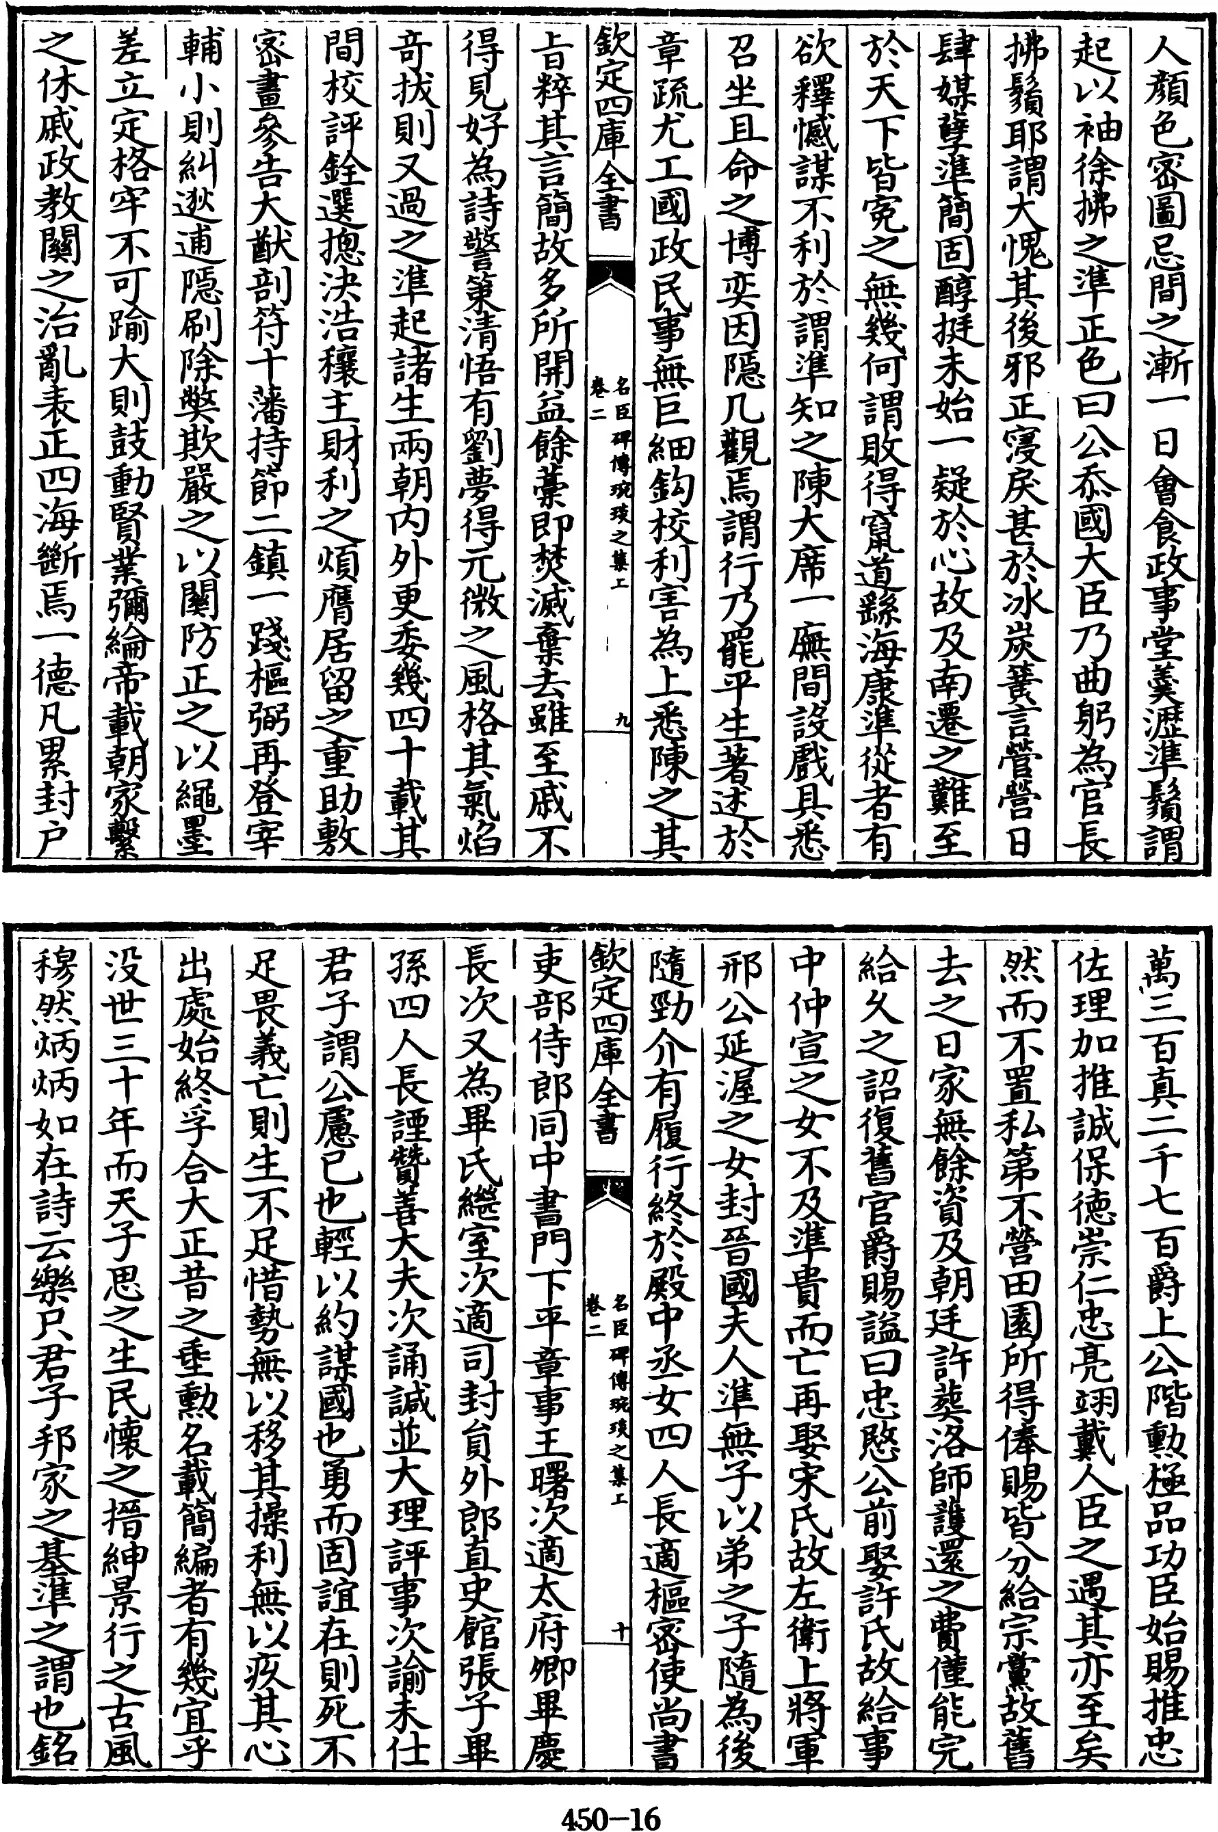 人顔色密圖忌間之漸一日㑹食政事堂羮瀝準鬚謂
起以袖徐拂之準正色曰公忝國大臣乃曲躬為官長
拂鬚耶謂大愧其後邪正寖戾甚於冰炭簧言營營日
肆媒孽準簡固醇挺未始一疑於心故及南遷之難至
於天下皆寃之無幾何謂敗得竄道繇海康準從者有
欲釋憾謀不利於謂準知之陳大席一廡間設戲具悉
召坐且命之博奕因隠几觀焉謂行乃罷平生著述於
章疏尤工國政民事無巨細鈎校利害為上悉陳之其
欽定四庫全書
名臣碑傳琬琰之集上
卷二
九
上旨粹其言簡故多所開益餘藁即焚滅棄去雖至戚不
得見好為詩警策清悟有劉夢得元微之風格其氣焰
奇拔則又過之準起諸生兩朝内外更委幾四十載其
間校評銓選揔決浩穰主財利之煩膺居留之重助敷
宻畫參告大猷剖符十藩持節二鎮一踐樞弼再登宰
輔小則糾逖逋隠刷除獘欺嚴之以關防正之以繩墨
差立定格牢不可踰大則鼓動賢業彌綸帝載朝家繫
之休戚政教關之治亂表正四海斷焉一德凡累封户
萬三百真二千七百爵上公階勳極品功臣始賜推忠
佐理加推誠保德崇仁忠亮翊戴人臣之遇其亦至矣
然而不置私第不營田園所得俸賜皆分給宗黨故舊
去之日家無餘資及朝廷許葬洛師護還之費僅能完
給久之詔復舊官爵賜諡曰忠愍公前娶許氏故給事
中仲宣之女不及準貴而亡再娶宋氏故左衛上將軍
邢公延渥之女封晉國夫人準無子以弟之子隨為後
隨勁介有履行終於殿中丞女四人長適樞宻使尚書
欽定四庫全書
名臣碑傳琬琰之集上
卷二
十
吏部侍郎同中書門下平章事王曙次適太府卿畢慶
長次又為畢氏繼室次適司封員外郎直史館張子臯
孫四人長諲贊善大夫次誦諴並大理評事次諭未仕
君子謂公慮已也輕以約謀國也勇而固誼在則死不
足畏義亡則生不足惜勢無以移其操利無以疚其心
出處始終孚合大正昔之垂勲名載簡編者有幾宜乎
没世三十年而天子思之生民懷之搢紳景行之古風
穆然炳炳如在詩云樂只君子邦家之基準之謂也銘
450-16